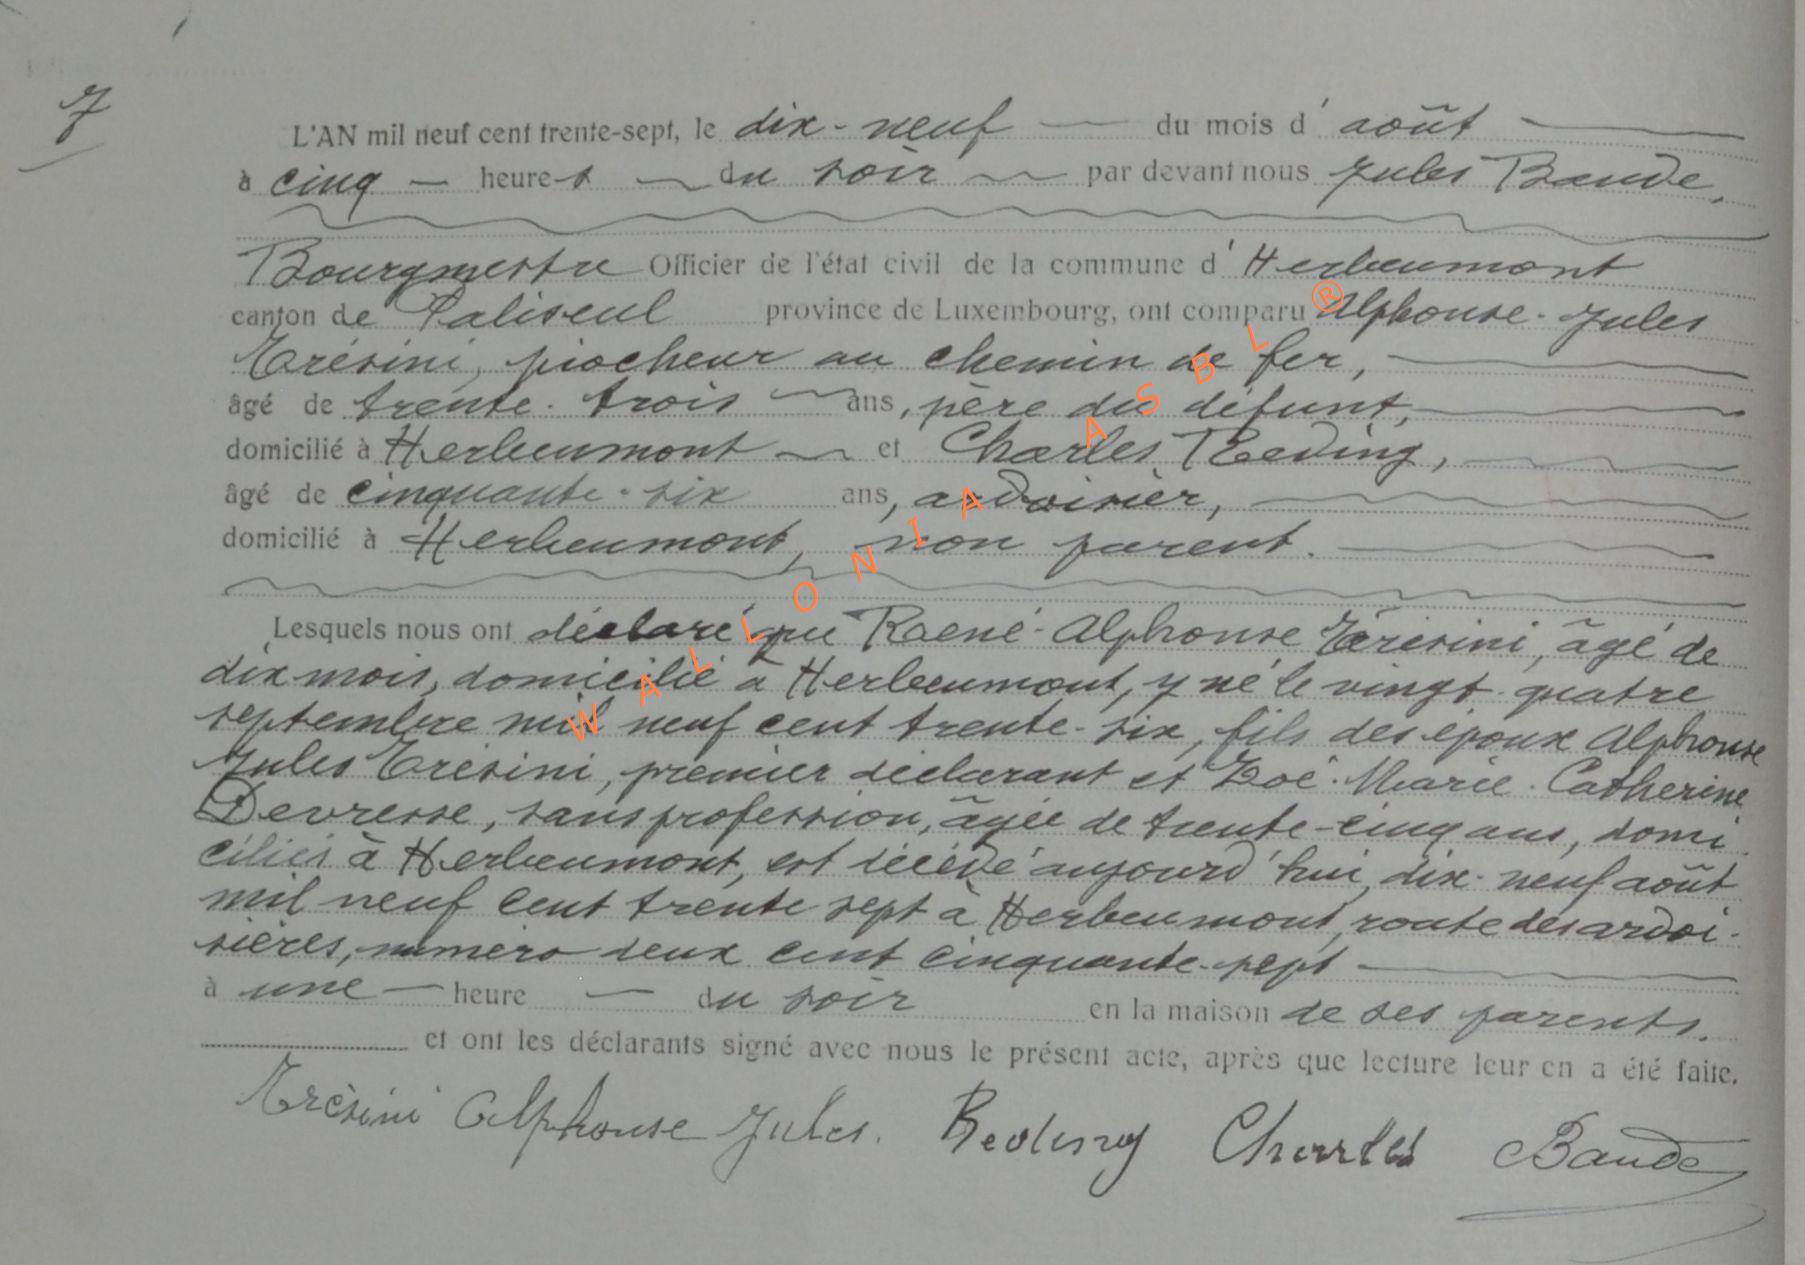 7
L'AN mil neuf cent trente-sept, le dix-neuf du mois d'août
à cinq heures du soir par devant nous Jules Baude,
Bourgmestre Officier de l'état civil de la commune d'Herbeumont
canton de Paliseul province de Luxembourg, ont comparu Alphonse-Jules
Trésini, piocheur au chemin de fer,
âgé de trente-trois ans, père du défunt,
domicilié à Herbeumont et Charles Reding,
âgé de cinquante-six ans, ardoisier,
domicilié à Herbeumont, non parent.
Lesquels nous ont déclaré que René-Alphonse Trésini, âgé de
dix mois, domicilié à Herbeumont, y né le vingt-quatre
septembre mil neuf cent trente-six, fils des époux Alphonse
Jules Trésini, premier déclarant et Zoé-Marie-Catherine
Devresse, sans profession, âgée de trente-cinq ans, domi
ciliés à Herbeumont, est décédé aujourd'hui, dix-neuf août
mil neuf cent trente sept à Herbeumont, route des ardoi-
sières, numéro deux cent cinquante-sept
à une heure du soir en la maison de ses parents.
et ont les déclarants signé avec nous le présent acte, après que lecture leur en a été faite.
Trésini Alphonse Jules. Reding Charles Baude
WALLONIA ASBL ®